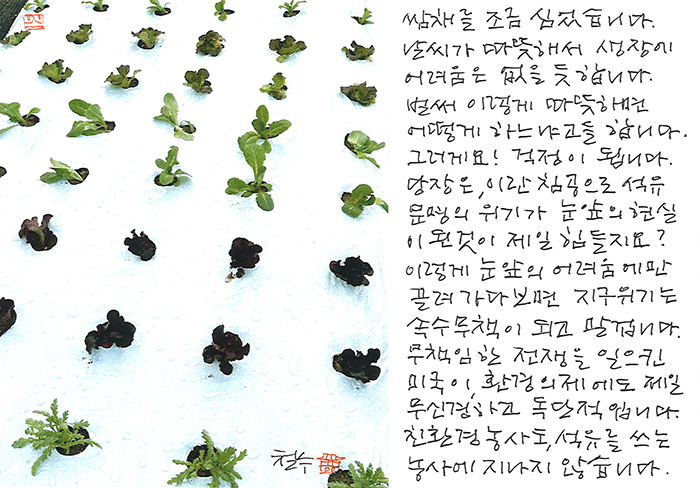 쌈채를 조금 심었습니다.
날씨가 따뜻해서 생장에
어려움은 없을 듯 합니다.
벌써 이렇게 따뜻해면
어떻게 하느냐고들 합니다.
그러게요! 걱정이 됩니다.
당장은, 이란침공으로 석유
문명의 위기가 눈앞의 현실
이 된것이 제일 힘들지요?
이렇게 눈앞의 어려움에만
끌려가다보면 지구위기는
속수무책이 되고 말겁니다.
무책임한 전쟁을 일으킨
미국이, 환경의제에도 제일
무신경하고 독단적입니다.
친환경농사도, 석유를 쓰는
농사에 지나지 않습니다.
철수